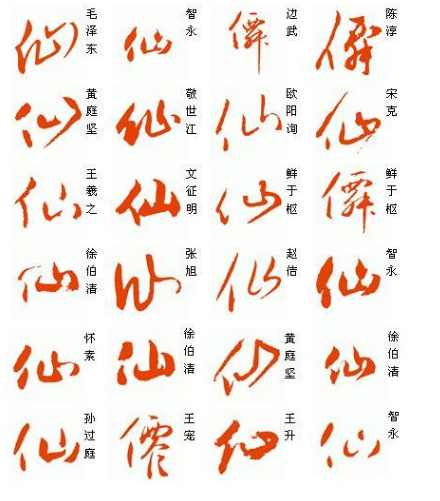 仙 毛泽东 仙 智永 僊 边武 僊 陈淳
仙 黄庭坚 仙 敬世江 仙 欧阳询 仙 宋克
仙 王羲之 仙 文征明 仙 鲜于枢 僊 鲜于枢
仙 徐伯清 仙 张旭 仙 赵佶 仙 智永
仙 怀素 仙 徐伯清 仙 黄庭坚 仙 徐伯清
仙 孙过庭 僊 王宠 仙 王升 仙 智永